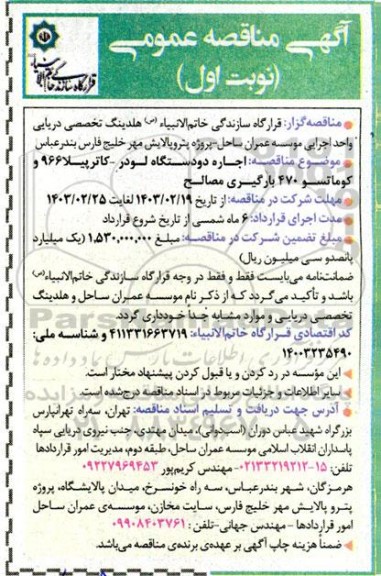 آگهی مناقصه عمومی
(نوبت اول)
قرارگاه سازندگی خاتم الانبیاء
مناقصه‌گزار: قرارگاه سازندگی خاتم‌الانبیاء (ص) هلدینگ تخصصی دریایی
واحد اجرایی موسسه عمران ساحل-پروژه پتروپالایش مهر خلیج فارس بندرعباس
موضوع مناقصه: اجاره دودستگاه لودر -کاترپیلا۹۶۶ و
کوماتسو ۴۷۰ بارگیری مصالح
مهلت شرکت در مناقصه: از تاریخ ۱۴۰۳/۰۲/۱۹ لغایت ۱۴۰۳/۰۲/۲۵
مدت اجرای قرارداد: ۶ ماه شمسی از تاریخ شروع قرارداد
مبلغ تضمین شرکت در مناقصه: مبلغ ۱,۵۳۰,۰۰۰,۰۰۰ (یک میلیارد
پانصدو سی میلیون ریال)
ضمانت‌نامه می‌بایست فقط و فقط در وجه قرارگاه سازندگی خاتم‌الانبیاء(ص)
باشد و تأکید می‌گردد که از ذکر نام موسسه عمران ساحل و هلدینگ
تخصصی دریایی و موارد مشابه جداً خودداری گردد.
کد اقتصادی قرارگاه خاتم‌الانبیاء: ۴۱۱۳۳۱۶۶۳۷۱۹ و شناسه ملی:
۱۴۰۰۳۲۳۵۴۹۰
این مؤسسه در رد کردن و یا قبول کردن پیشنهاد مختار است.
سایر اطلاعات و جزئیات مربوط در اسناد مناقصه درج شده است.
آدرس جهت دریافت و تسلیم اسناد مناقصه: تهران، سه‌راه تهرانپارس
بزرگراه شهید عباس دوران (استخر)، میدان مهتدی، جنب نیروی دریایی سپاه
پاسداران انقلاب اسلامی موسسه عمران ساحل، طبقه دوم، مدیریت امور قراردادها
تلفن: ۱۵-۰۲۱۳۳۲۱۹۲۱۲-مهندس کریم‌پور ۰۹۲۲۷۹۶۹۴۵۳
هرمزگان، شهر بندرعباس، سه راه خونسرخ، میدان پالایشگاه، پروژه
پترو پالایش مهر خلیج فارس، سایت مخازن، موسسه‌ی عمران ساحل
امور قراردادها - مهندس جهانی-تلفن: ۰۹۹۰۸۴۰۳۷۶۱
ضمناً هزینه چاپ آگهی بر عهده‌ی برنده‌ی مناقصه می‌باشد.